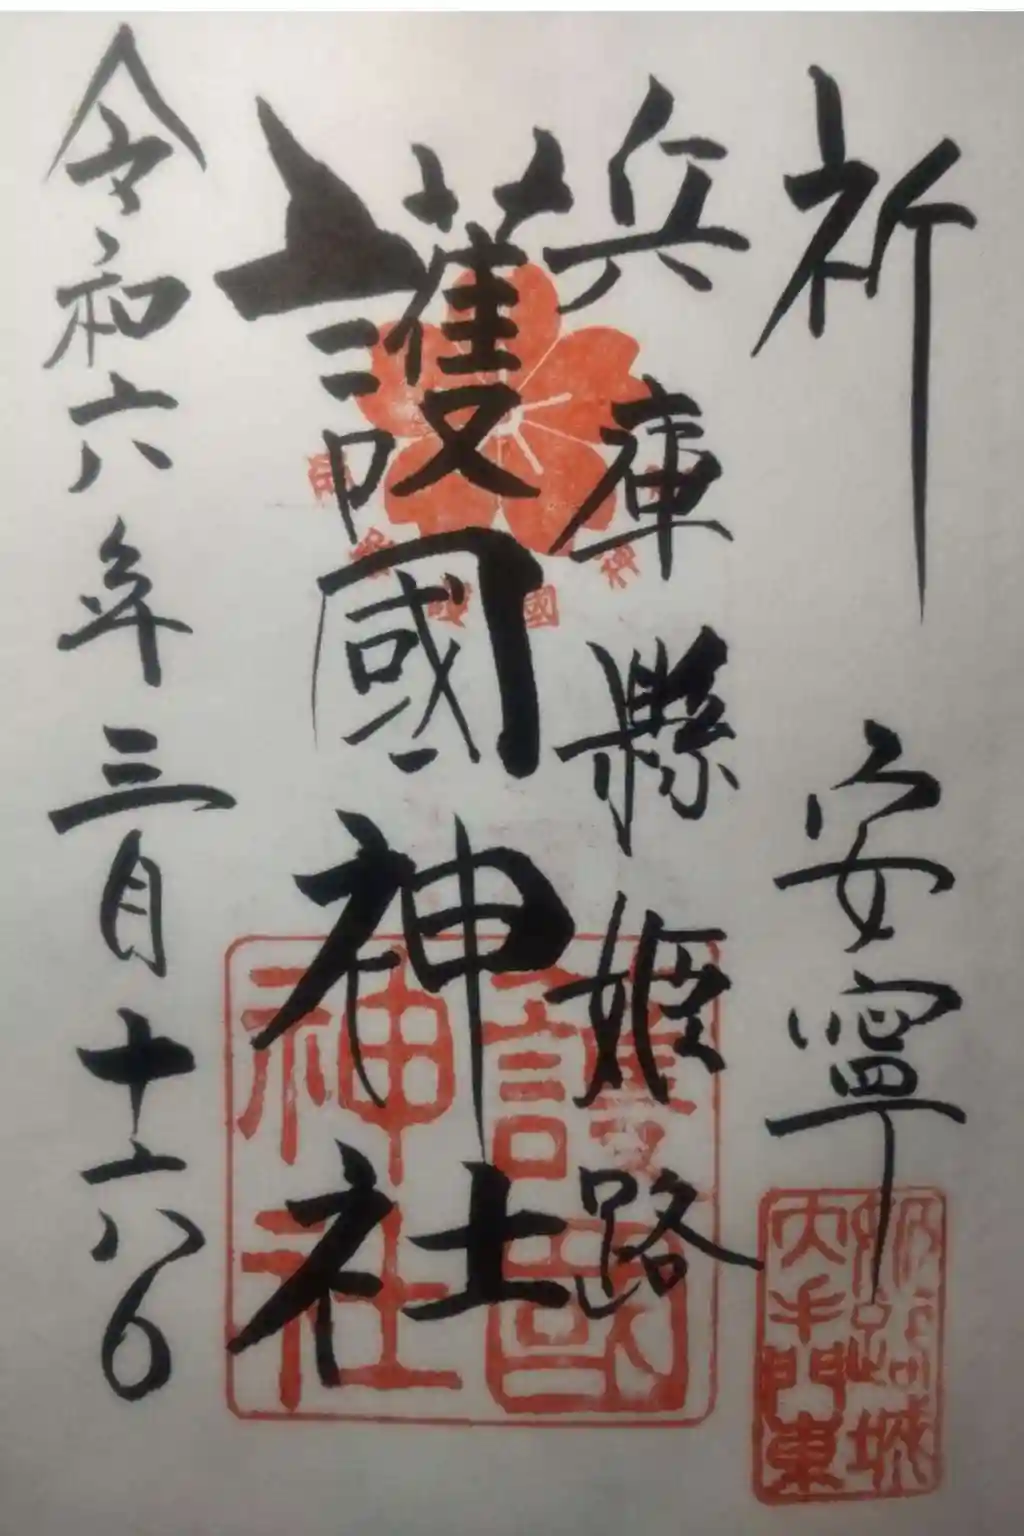 祈 安寧
兵庫縣姫路
護國神社
令和六年三月十六日
姫路城
大手門東
護國
神社